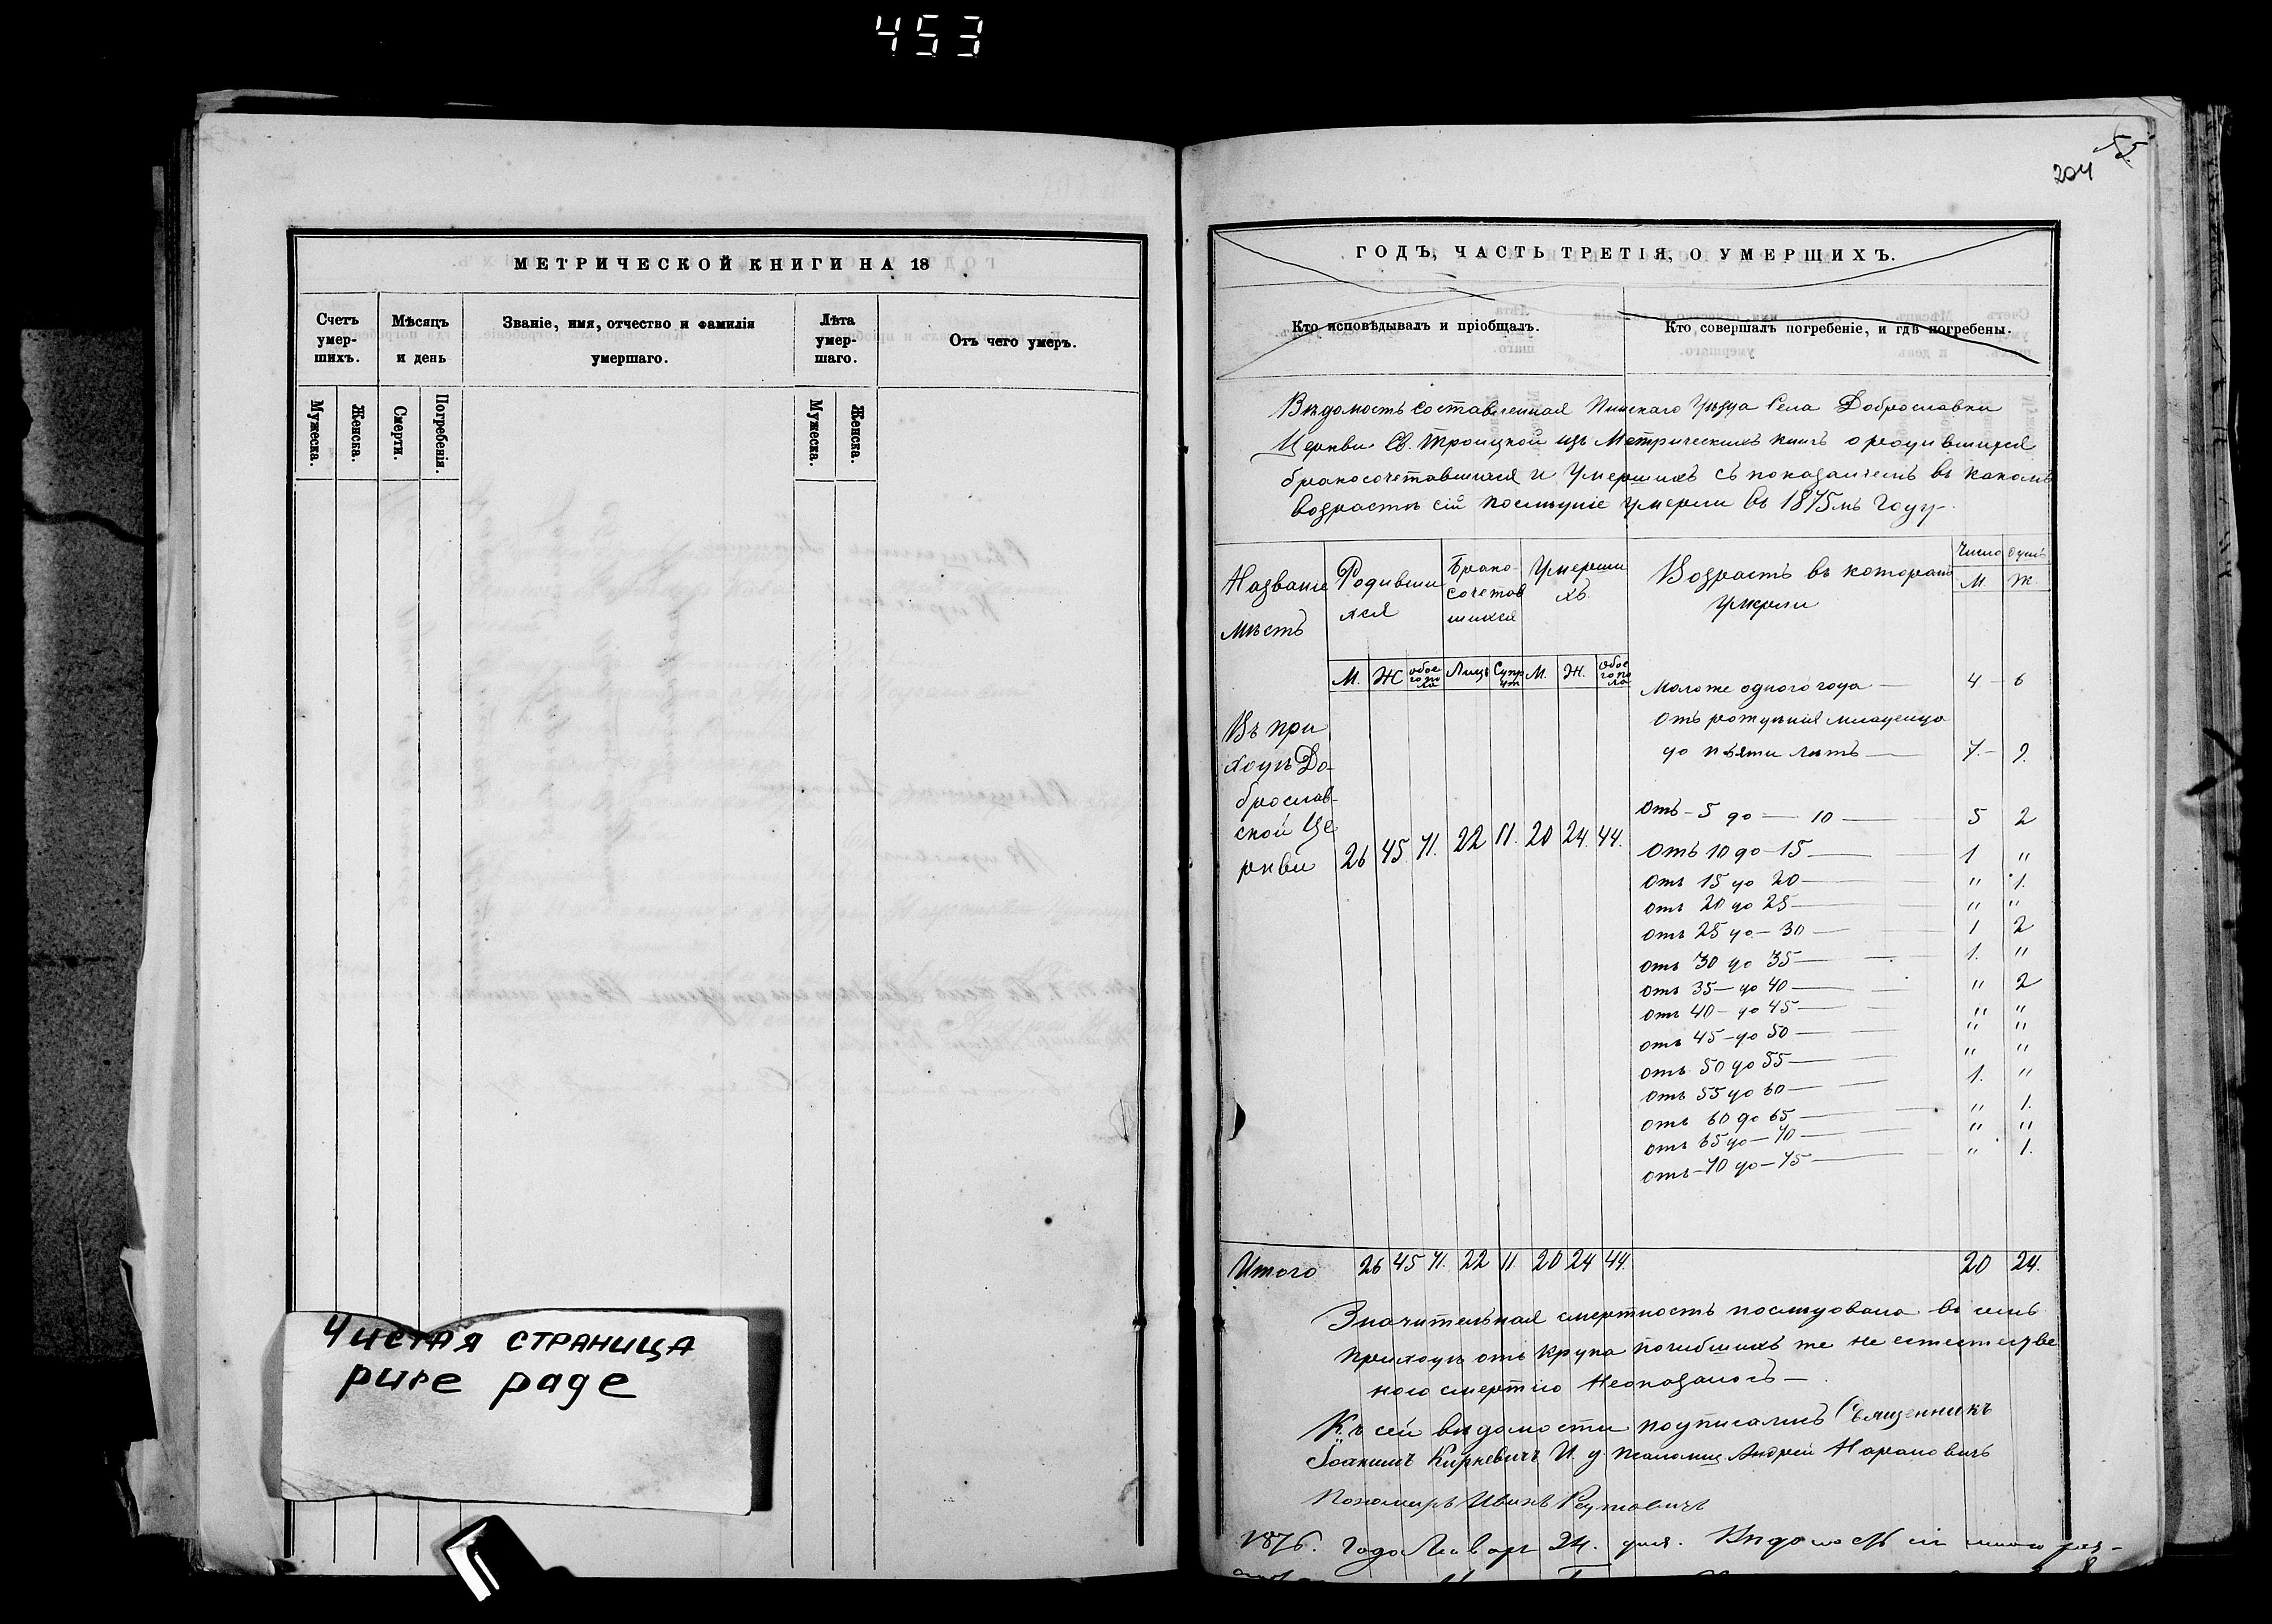 453
55
204
МЕТРИЧЕСКОЙ КНИГИ НА 18
Счетъ умер-шихъ.
Мѣсяцъ и день
Званіе, имя, отчество и фамилія умершаго.
Лѣта умер-шаго.
Отъ чего умеръ.
Мужеска.
Женска.
Смерти.
Погребенія.
Мужеска.
Женска.
Чистая страница
pure page
ГОДЪ, ЧАСТЬ ТРЕТІЯ, О УМЕРШИХЪ.
Кто исповѣдывалъ и пріобщалъ.
Кто совершалъ погребеніе, и гдѣ погребены.
Вѣдомость составленная Пинскаго Уѣзда Села Доброславки
Церкви Св. Троицкой изъ Метрическихъ книгъ о родившихся
бракосочетавшихся и Умершихъ съ показаніемъ въ какомъ
возрастѣ сій послѣдніе умерли въ 1875мъ Году
Названіе мѣстъ
Родивши хся
Брако-сочетав шихся
Умерши хъ
Возрастъ въ которомъ умерли
Число душъ
М. Ж.
М. Ж обое го по ла Лицъ Супр М. Ж. Обое го по ла
Въ при
ходѣ До-
брослав-
ской Це
ркви
26 45 71. 22 11. 20 24. 44.
Моложе одного года — 4 — 6
Отъ рожденія младенца
до пяти лѣтъ — 7. — 9.
Отъ — 5 до — 10 — 5 2
Отъ 10 до — 15 — 1 "
Отъ 15 до 20 — " 1.
Отъ 20 до 25 — " "
Отъ 25 до — 30 — 1 2
Отъ 30 до 35 — 1. "
Отъ 35 — до 40 — " 2
Отъ 40 — до 45 — " "
Отъ 45 — до 50 — " "
Отъ 50 до 55 — " "
Отъ 55 до 60 — 1. "
Отъ 60 до 65 — " 1.
Отъ 65 до — 70 — " "
Отъ — 70 до — 75 — " 1.
Итого 26 45 71. 22 11 20 24 44. 20 24.
Значительная смертность послѣдовала въ семъ
приходѣ отъ крупа погибшихъ же не естестве
ного смертію Неоказалось —
Къ сей вѣдомости подписались Священникъ
Іоакимъ Киркевичъ И. д. псаломщ. Андрей Нарановичъ
Пономарь Иванъ
1876. Года Январ 24. дня. Вѣдомость сія мною